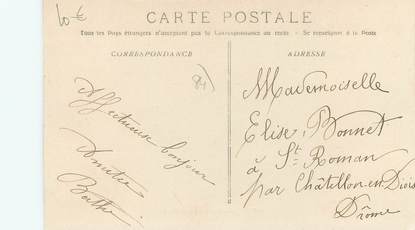 10 €
CARTE POSTALE
Tous les Pays étrangers n'acceptent pas la Correspondance au recto - Se renseigner à la Poste
CORRESPONDANCE
ADRESSE
Affectueux bonjour
Amitié
Berthe
Mademoiselle
Elise Bonnet
à St Roman
par Châtillon-en-Diois
Drôme